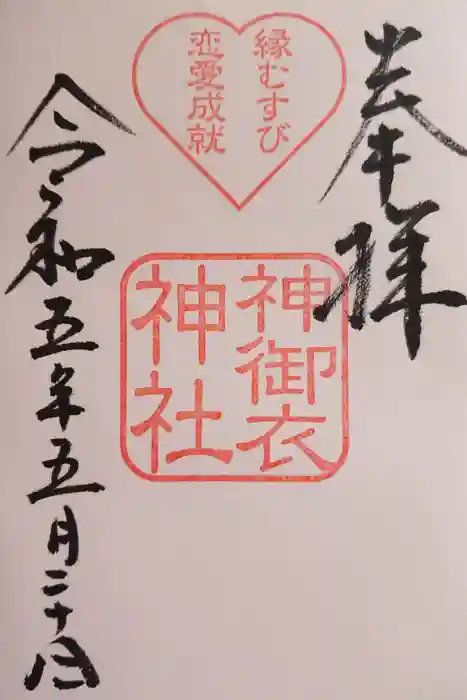 奉拝
縁むすび
恋愛成就
神御衣
神社
令和五年五月二十日